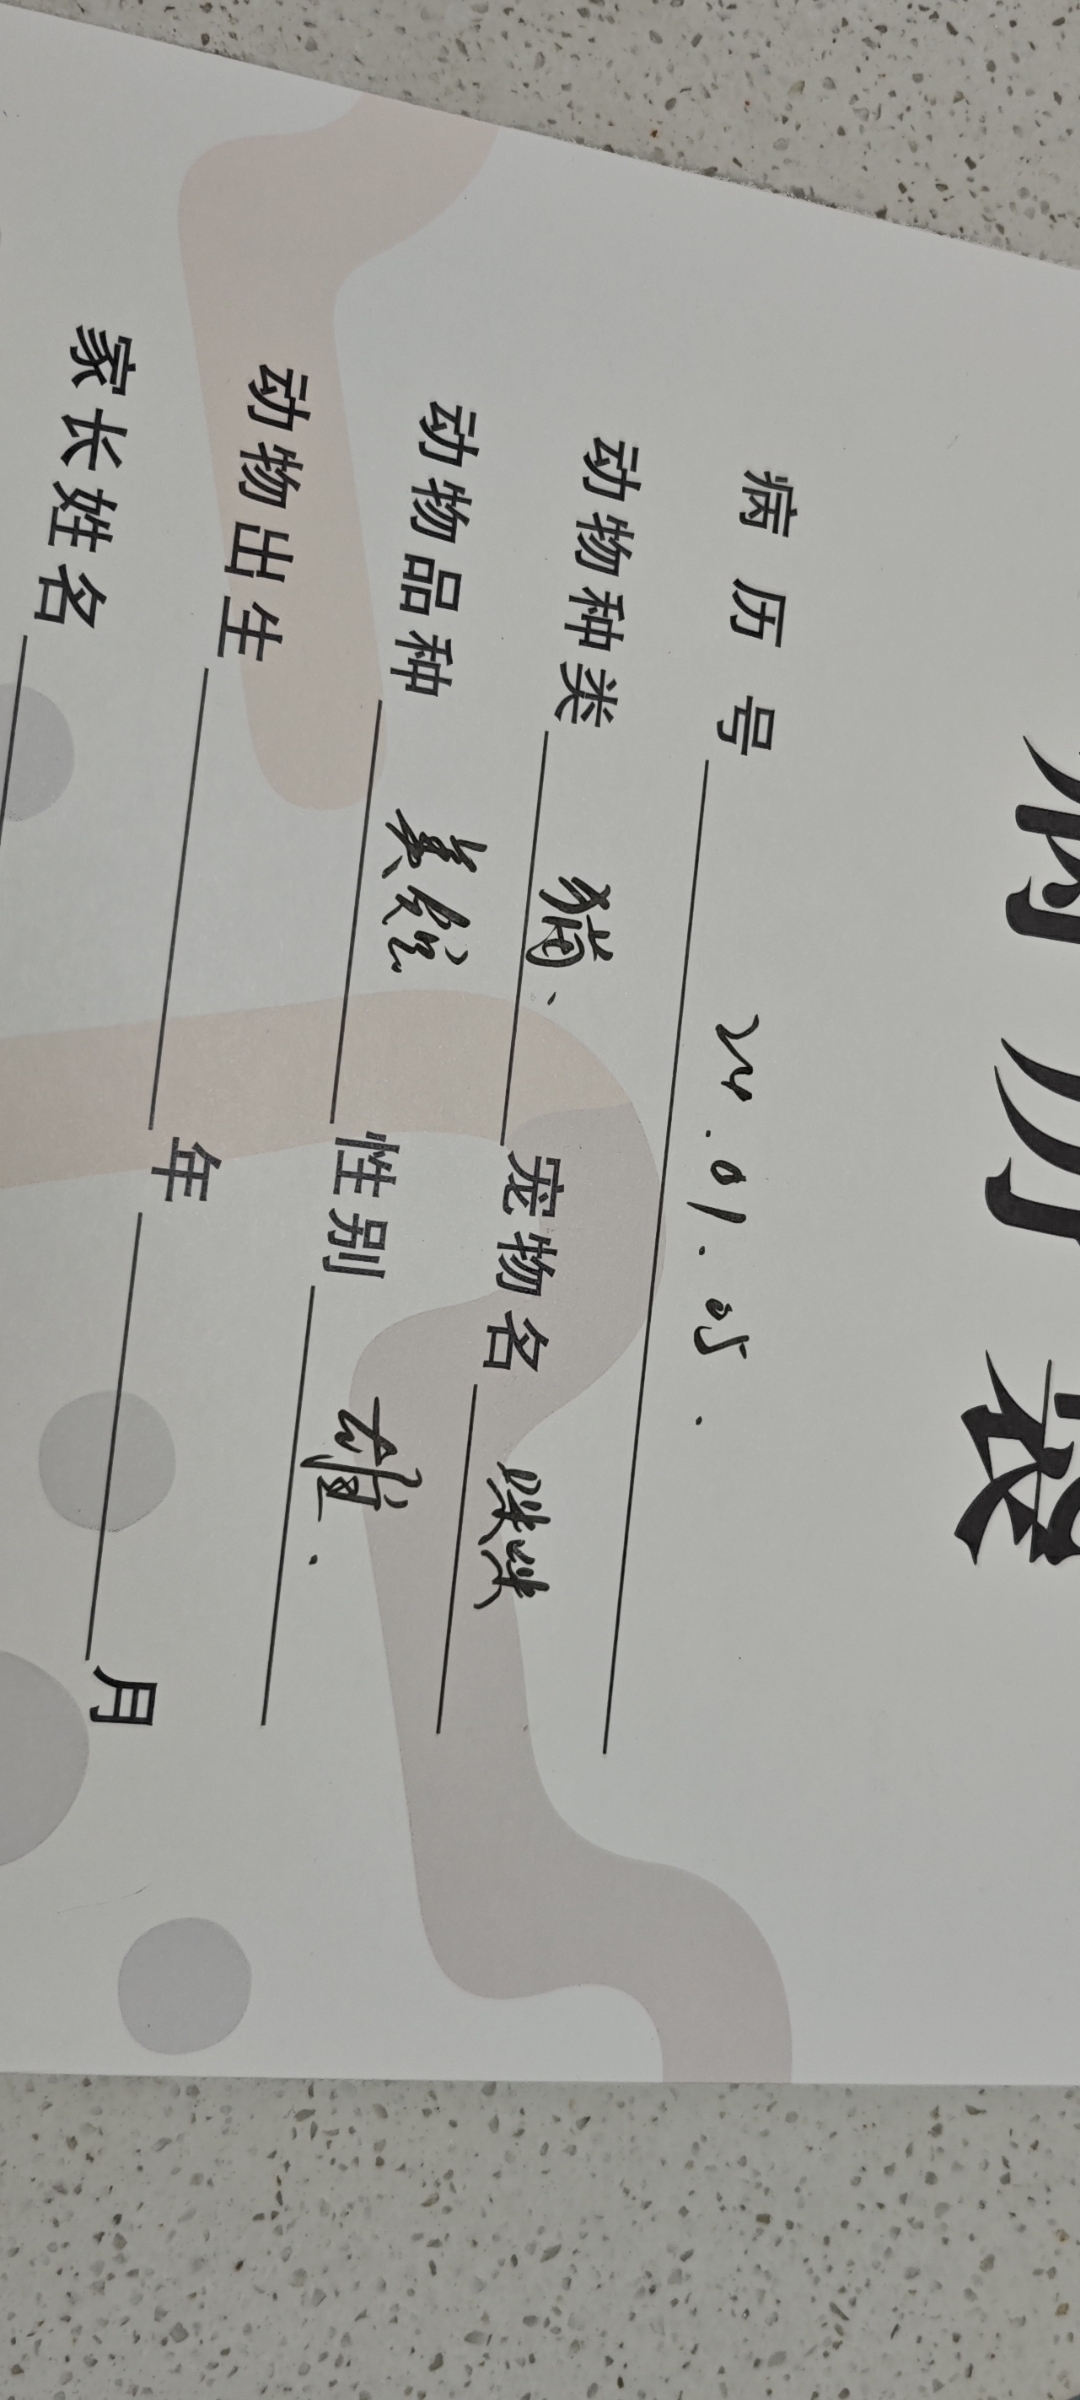 病历袋
病历号 24.01.05.
动物种类 猫、 宠物名
动物品种 美短 性别 雄.
动物出生 年 月
家长姓名